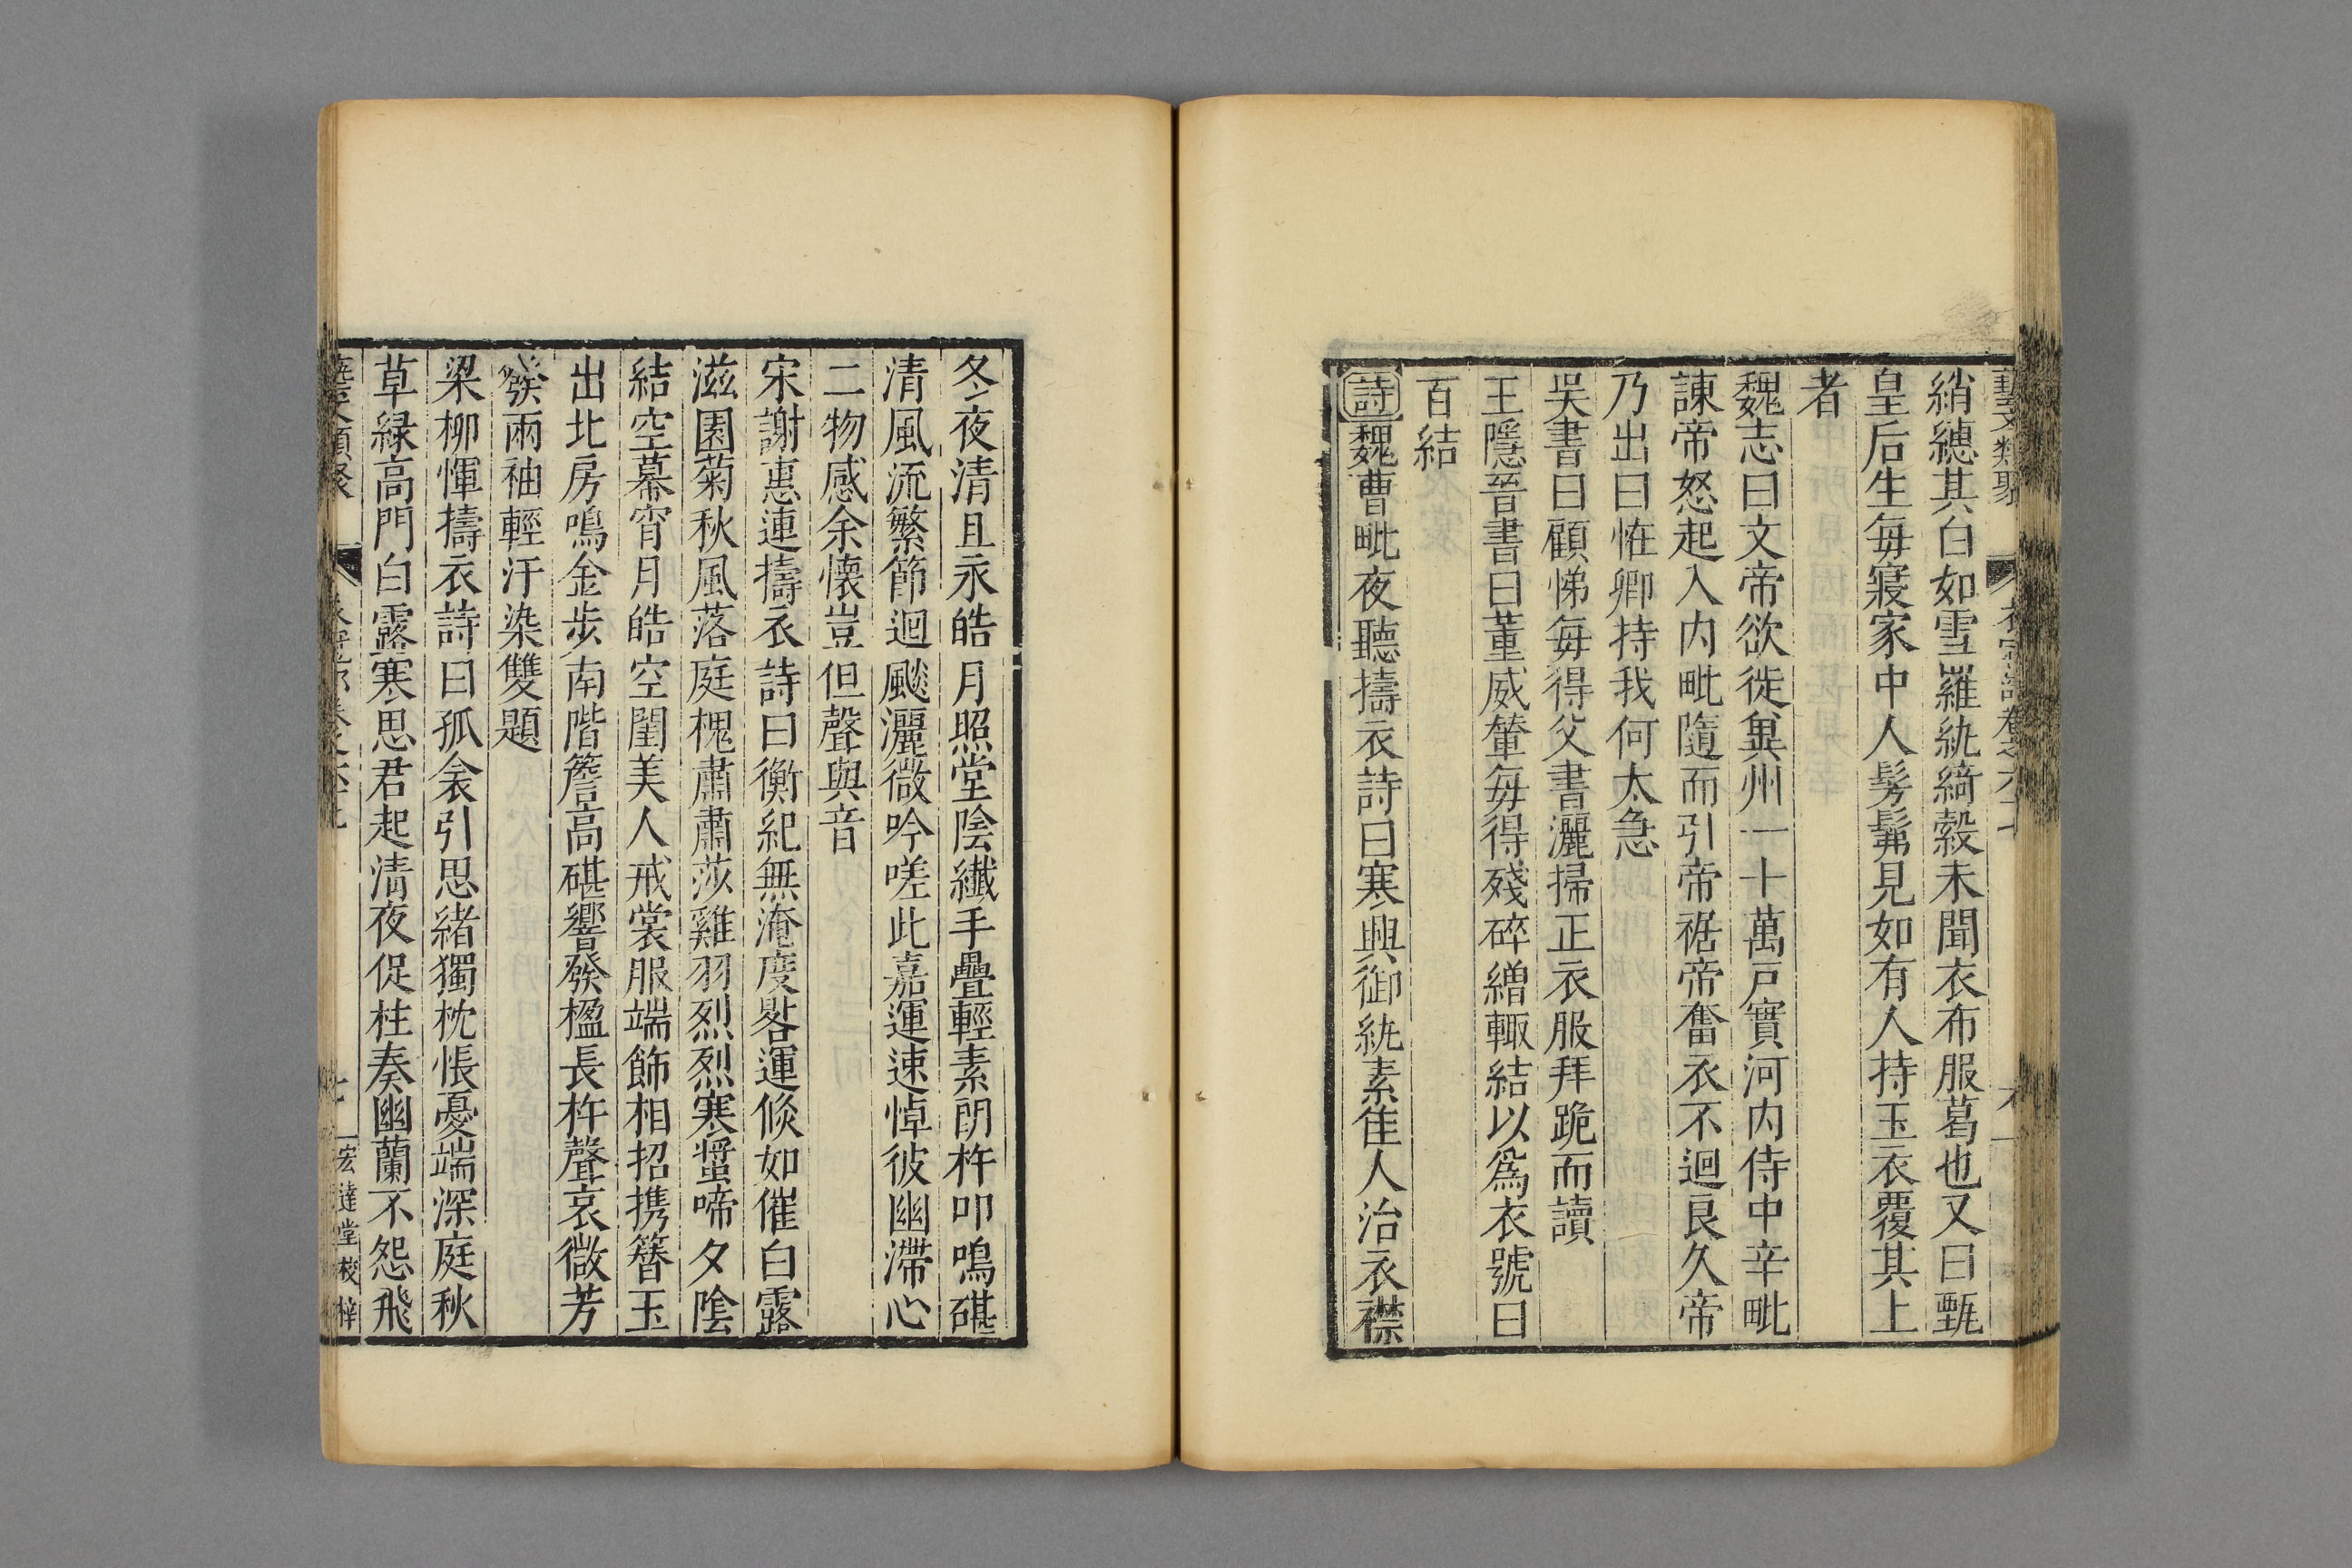 藝文類聚 衣冠部卷之六十七
綃緫其白如雪羅紈綺縠未聞衣布服葛也又曰甄
皇后生每寢家中人髣髴見如有人持玉衣覆其上
者
魏志曰文帝欲徙兾州一十萬戸實河内侍中辛毗
諌帝怒起入内毗隨而引帝裾帝奮衣不迴良久帝
乃出曰恠卿持我何太急
吳書曰顧悌每得父書灑掃正衣服拜跪而讀
王隱晉書曰董威輦每得殘碎繒輙結以爲衣號曰
百結
詩魏曹毗夜聽擣衣詩曰寒興御紈素隹人治衣襟
冬夜清且永皓月照堂陰纖手疊輕素朗杵叩鳴碪
清風流繁節迴飈灑微吟嗟此嘉運速悼彼幽滯心
二物感余懐豈但聲與音
宋謝惠連擣衣詩曰衡紀無淹度晷運倏如催白露
滋園菊秋風落庭槐肅肅莎雞羽烈烈寒螿啼夕陰
結空幕宵月皓空閨美人戒裳服端飾相招携簪玉
出北房鳴金步南階簷高碪響發楹長杵聲哀微芳
發兩袖輕汗染雙題
梁柳惲擣衣詩曰孤衾引思緒獨枕悵憂端深庭秋
草緑高門白露寒思君起清夜促柱奏幽蘭不怨飛
藝文類聚 七 宏達堂校梓